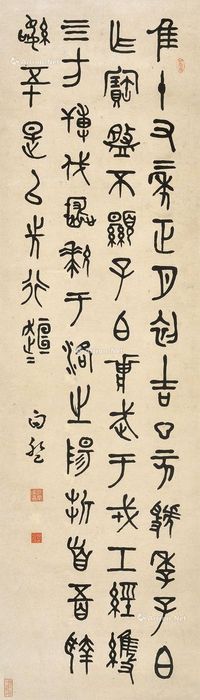 隹十又二年正月初吉丁亥虢季子白
乍寶盤不顯子白壯武于戎工經維
四方搏伐玁狁于洛之陽折首五百執
訊五十是以先行桓桓